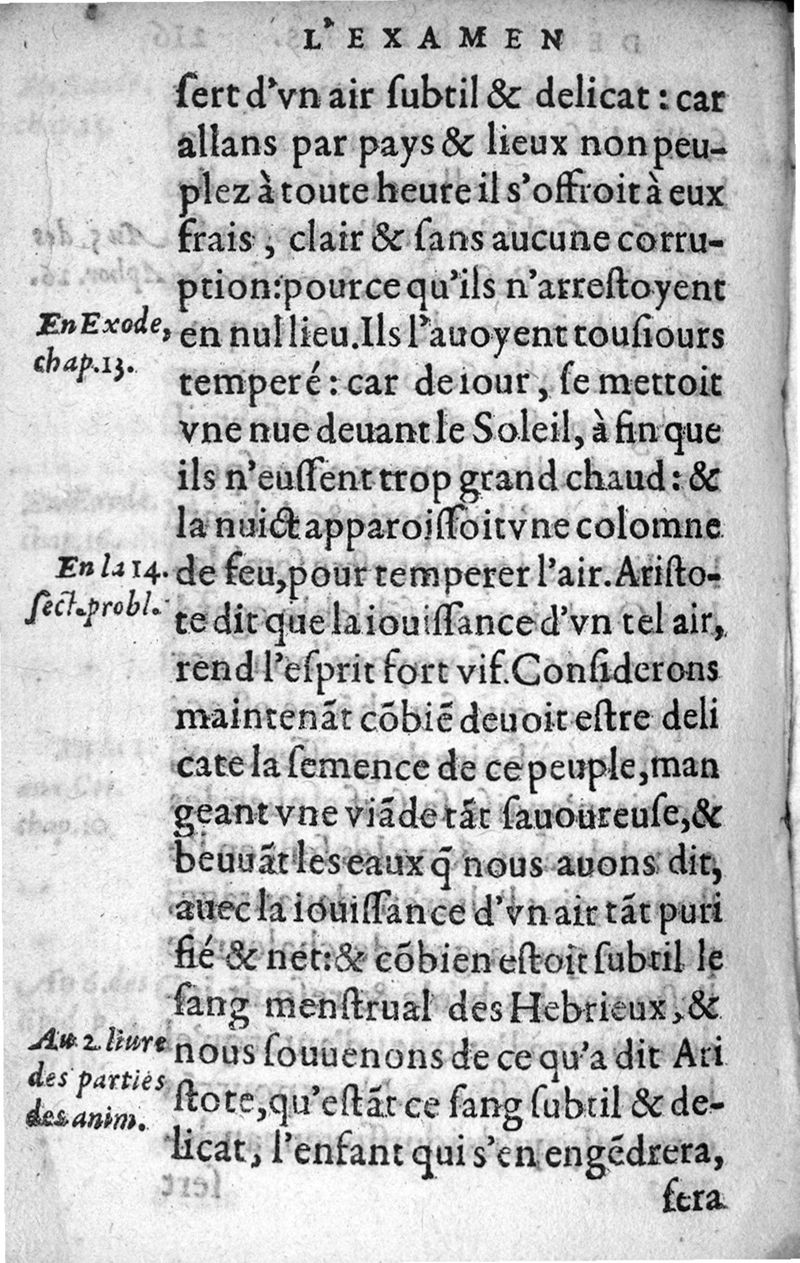 L'EXAMEN
ſert d'vn air ſubtil & delicat : car
allans par pays & lieux non peu-
plez à toute heure il s'offroit à eux
frais , clair & ſans aucune corru-
ption: pource qu'ils n'arreſtoyent
En Exode,
chap.13.
en nul lieu. Ils l'auoyent touſiours
temperé : car de iour , ſe mettoit
vne nue deuant le Soleil, à fin que
ils n'euſſent trop grand chaud : &
la nuict apparoiſſoit vne colomne
En la 14.
ſect.probl.
de feu, pour temperer l'air. Ariſto-
te dit que la iouiſſance d'vn tel air,
rend l'eſprit fort vif. Conſiderons
maintenãt cõbiẽ deuoit eſtre deli
cate la ſemence de ce peuple, man
geant vne viãde tãt ſauoureuſe, &
beuuãt les eaux q̃ nous auons dit,
auec la iouiſſance d'vn air tãt puri
fié & net: & cõbien eſtoit ſubtil le
ſang menſtrual des Hebrieux, &
Au 2. liure
des parties
des anim.
nous ſouuenons de ce qu'a dit Ari
ſtote, qu'eſtãt ce ſang ſubtil & de-
licat, l'enfant qui s'en engẽdrera,
ſera